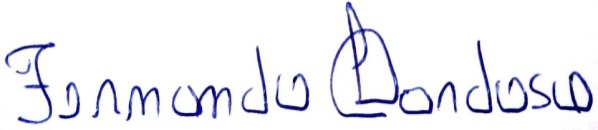 Fernando Cardoso